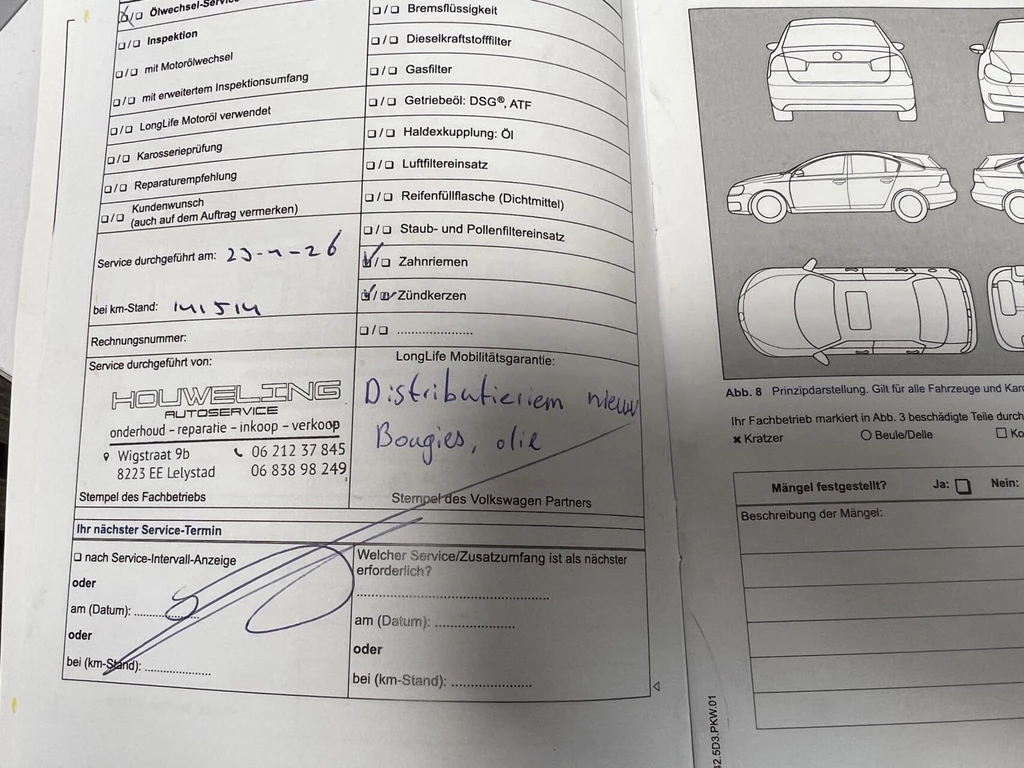 Ölwechsel-Service
Inspektion
mit Motorölwechsel
mit erweitertem Inspektionsumfang
LongLife Motoröl verwendet
Karosserieprüfung
Reparaturempfehlung
Kundenwunsch
(auch auf dem Auftrag vermerken)
Service durchgeführt am: 23-1-26
bei km-Stand: 141514
Rechnungsnummer:
Service durchgeführt von:
HOUWELING
AUTOSERVICE
onderhoud - reparatie - inkoop - verkoop
Wigstraat 9b 06 212 37 845
8223 EE Lelystad 06 838 98 249
Stempel des Fachbetriebs
Bremsflüssigkeit
Dieselkraftstofffilter
Gasfilter
Getriebeöl: DSG®, ATF
Haldexkupplung: Öl
Luftfiltereinsatz
Reifenfüllflasche (Dichtmittel)
Staub- und Pollenfiltereinsatz
Zahnriemen
Zündkerzen
LongLife Mobilitätsgarantie:
Distributieriem nieuw
Bougies, olie
Stempel des Volkswagen Partners
Ihr nächster Service-Termin
nach Service-Intervall-Anzeige
oder
am (Datum):
oder
bei (km-Stand):
Welcher Service/Zusatzumfang ist als nächster
erforderlich?
am (Datum):
oder
bei (km-Stand):
Abb. 8 Prinzipdarstellung. Gilt für alle Fahrzeuge und
Ihr Fachbetrieb markiert in Abb. 3 beschädigte Teile durch
Kratzer Beule/Delle
Mängel festgestellt? Ja: Nein:
Beschreibung der Mängel:
2.5D3.PKW.01